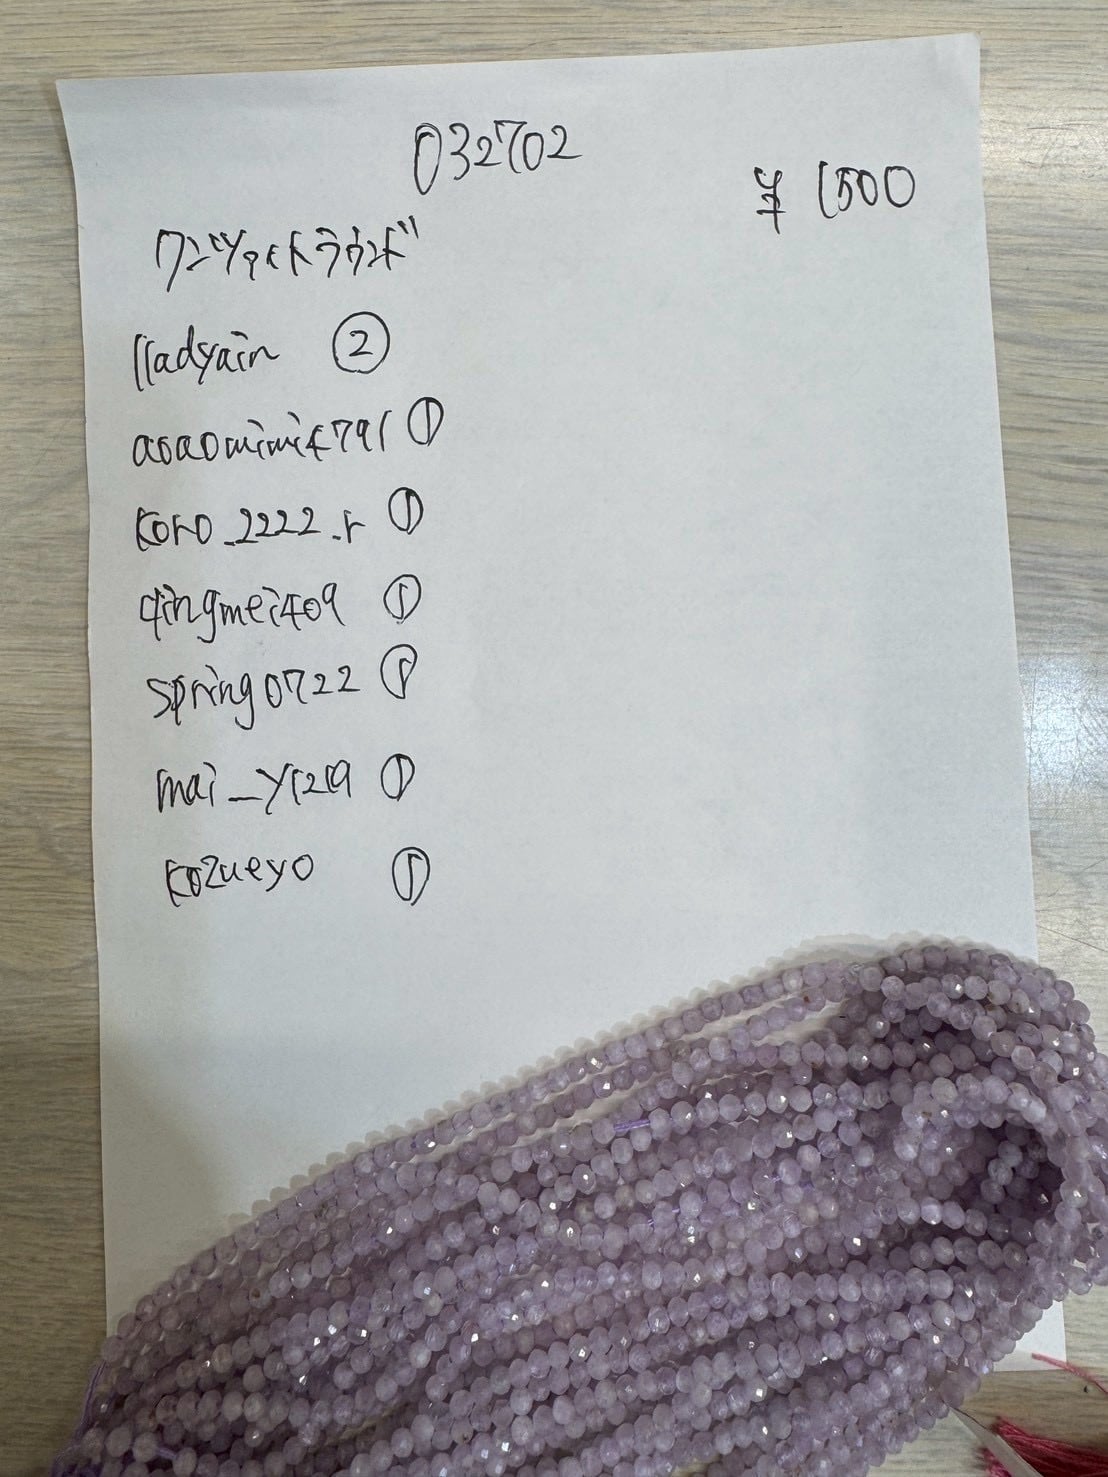 032702
¥ 1500
クンツァイトラウンド
lladyain ②
aoaomimi4791 ①
koro_2222_r ①
qingmei409 ①
spring0722 ①
mai_y1219 ①
kozueyo ①